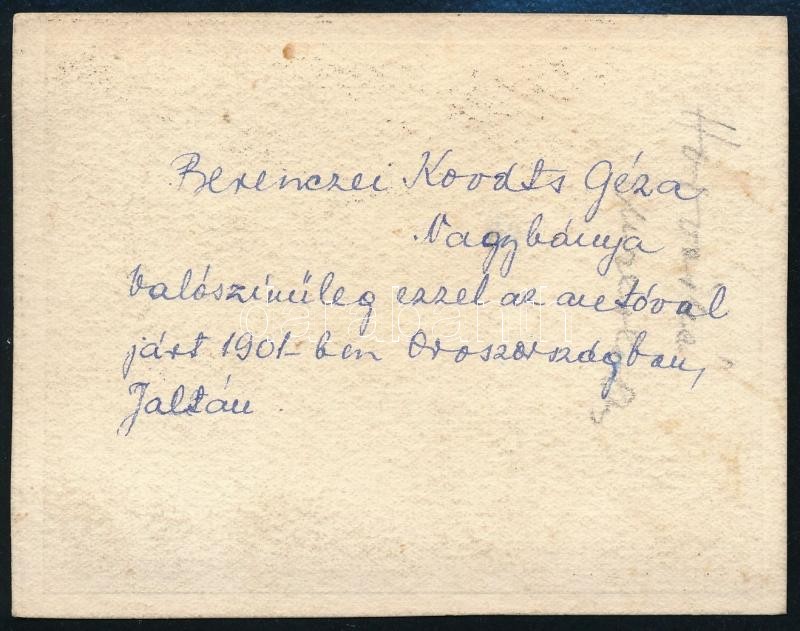 Berenczei Kováts Géza,
Nagybánya
Valószínűleg ezzel az autóval
járt 1901-ben Oroszországban,
Jaltán.
darabanth